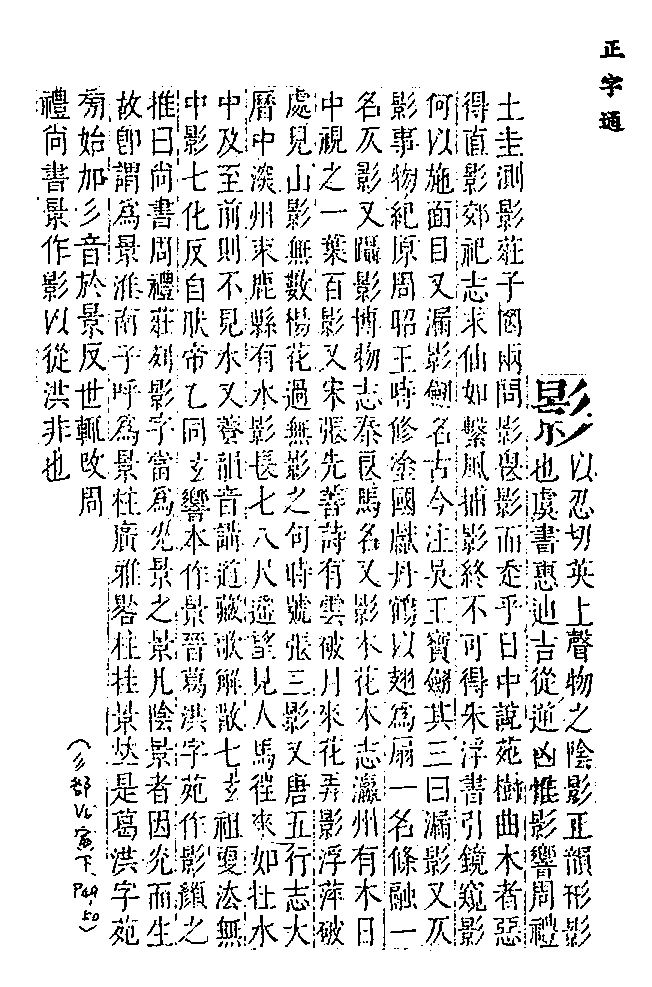 正字通
影
以忍切英上聲物之陰影正韻形影
也虞書惠迪吉從逆凶惟影響周禮
土圭測影莊子罔兩問影愚影而走乎日中說苑樹曲木者惡
得直影郊祀志求仙如繫風捕影終不可得朱浮書引鏡窺影
何以施面目又漏影劒名古今注吳王寶劒其三曰漏影又仄
影事物紀原周昭王時修塗國獻丹鶴以翅爲扇一名條融一
名仄影又躡影博物志秦良馬名又影木花木志瀛州有木日
中視之一葉百影又宋張先善詩有雲破月來花弄影浮萍破
處見山影無數楊花過無影之句時號張三影又唐五行志大
曆中深州束鹿縣有水影長七八尺遙望見人馬徃來如在水
中及至前則不見水又養韻音講道藏歌解散七玄祖變法無
中影七化反自吠帝乙同玄響本作景晉葛洪字苑作影顏之
推曰尚書周禮莊列影字當爲光景之景凡陰景者因光而生
故卽謂爲景淮南子呼爲景柱廣雅晷柱挂景竝是葛洪字苑
旁始加彡音於景反世輒改周
禮尚書景作影以從洪非也
(彡部 下 P49,50)